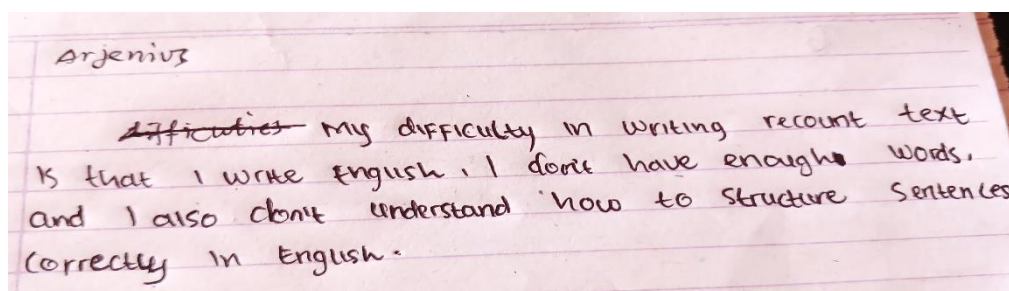 Arjenius
difficulties My difficulty in writing recount text
is that I write English, I don't have enough words,
and I also don't understand how to structure sentences
correctly in English.